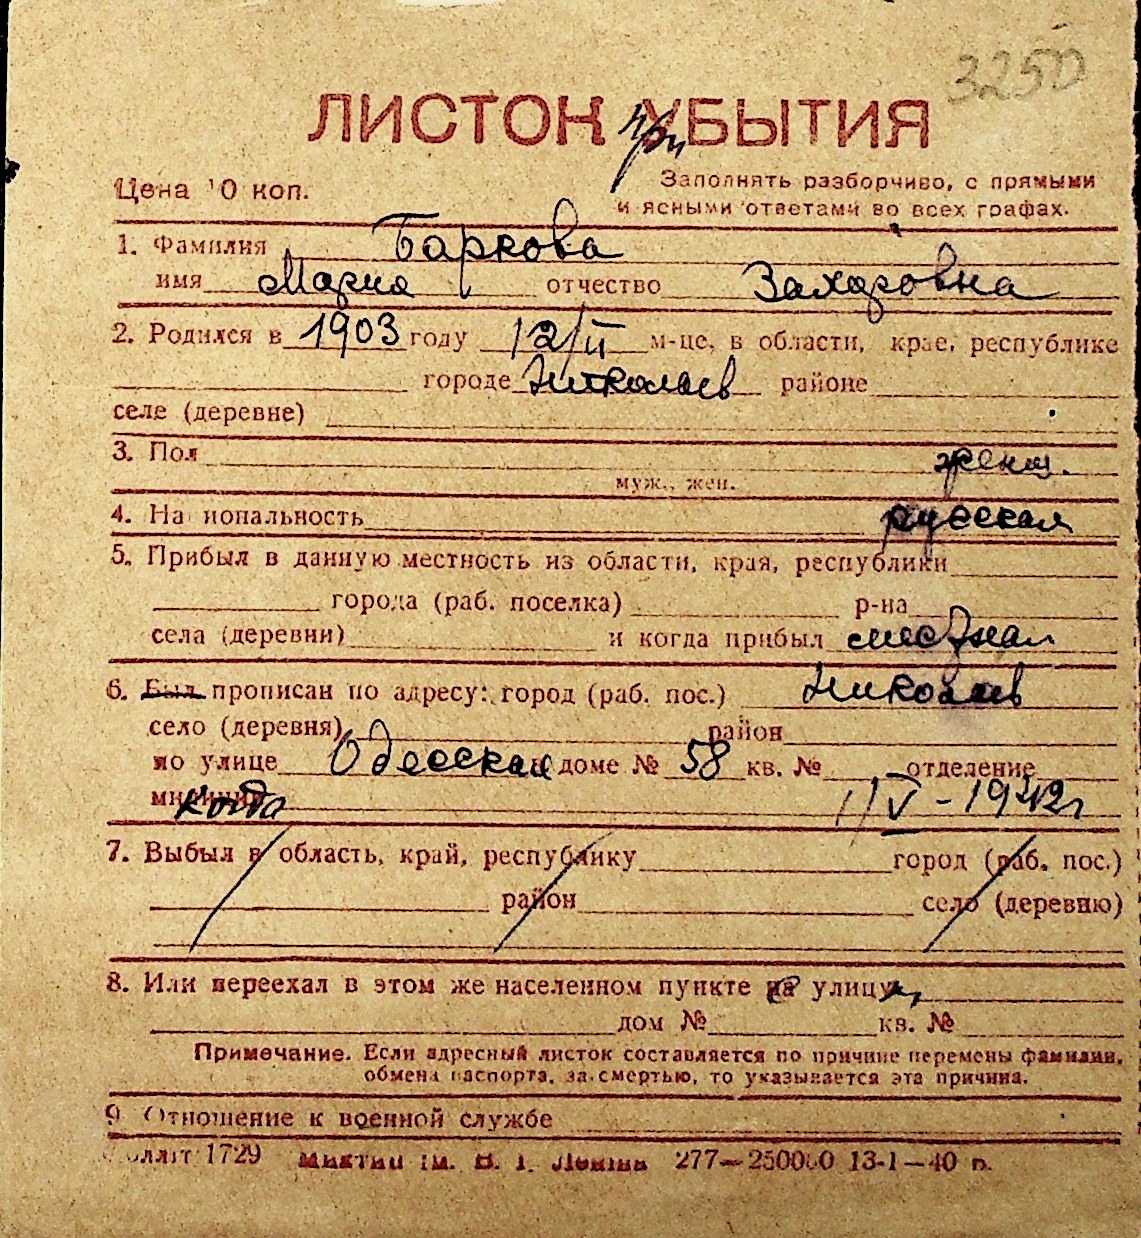 3250
ЛИСТОК при УБЫТИЯ
Цена 10 коп. Заполнять разборчиво, с прямыми
и ясными ответами во всех графах.
1. Фамилия Баркова
имя Мария отчество Захаровна
2. Родился в 1903 году 12/II м-це, в области, крае, республике
городе Николаев районе
селе (деревне)
3. Пол женщ.
муж., жен.
4. Национальность русская
5. Прибыл в данную местность из области, края, республики
города (раб. поселка) р-на
села (деревни) и когда прибыл местная
6. Был прописан по адресу: город (раб. пос.) Николаев
село (деревня) район
по улице Одесская доме № 58 кв. № отделение
милиции когда 1/V - 1942г
7. Выбыл в область, край, республику город (раб. пос.)
район село (деревню)
8. Или переехал в этом же населенном пункте на улицу
дом № кв. №
Примечание. Если адресный листок составляется по причине перемены фамилии,
обмена паспорта, за смертью, то указывается эта причина.
9. Отношение к военной службе
1729 им. В. І. Леніна 277—250000 13-1—40 р.